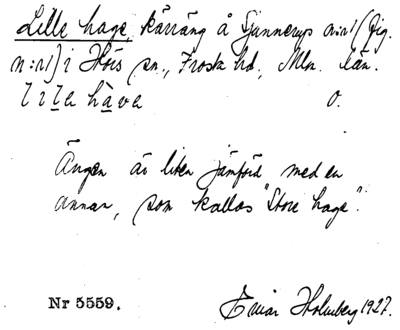 Lille hage, kärräng å Sjunnerup n:r 1 (fig.
n:r 1) i Hörs sn., Frosta hd., Mlm. län.
lila háve o.
Ängen är liten jämförd med en
annan, som kallas "Store hage".
Nr 5559. Einar Holmberg 1927.